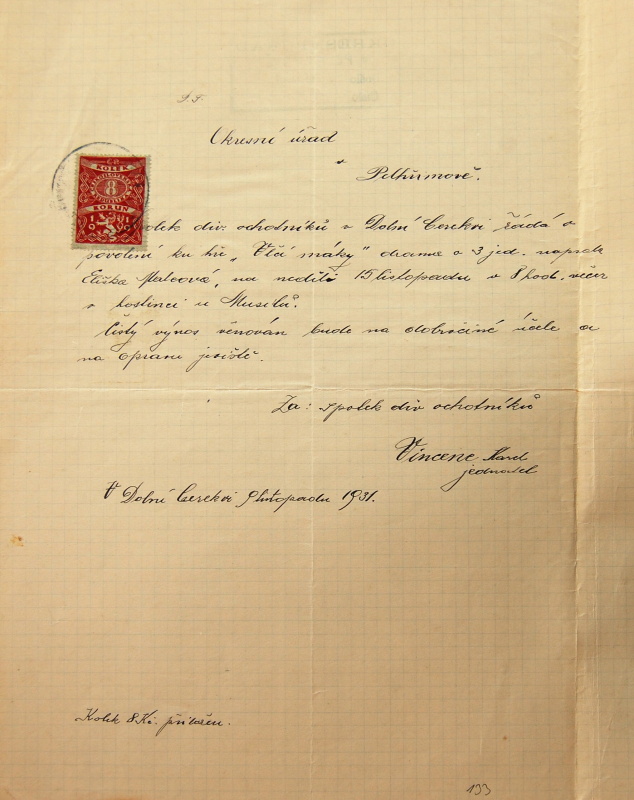 Okresní úřad
v
Pelhřimově.
KOLEK
8
KORUN
olek div. ochotníků v Dolní Cerekvi žádá o
povolení ku hře „Vlčí máky" drama o 3 jed. napsala
Eliška na neděli 15 listopadu v 8 hod. večer
v hostinci u Musilů.
Čistý výnos věnován bude na dobročiné účele a
na opravu jeviště.
Za: spolek div ochotníků
Vincenc Karel
jednatel
V Dolní Cerekvi 9 listopadu 1931.
Kolek 8 Kč. přiložen.
133